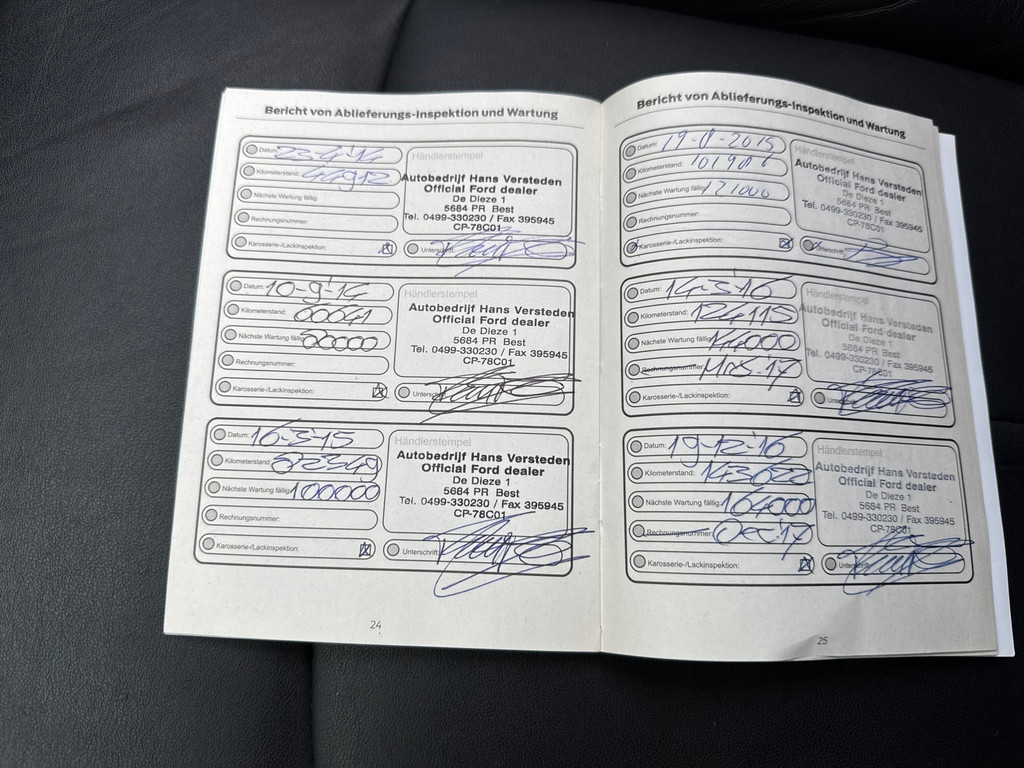 Bericht von Ablieferungs-Inspektion und Wartung
Datum: 23-4-'14
Kilometerstand: 44912
Nächste Wartung fällig:
Rechnungsnummer:
Karosserie-/Lackinspektion:
Händlerstempel
Autobedrijf Hans Versteden
Official Ford dealer
De Dieze 1
5684 PR Best
Tel. 0499-330230 / Fax 395945
CP-78C01
Datum: 10-9-'14
Kilometerstand: 60641
Nächste Wartung fällig: 80000
Rechnungsnummer:
Karosserie-/Lackinspektion:
Händlerstempel
Autobedrijf Hans Versteden
Official Ford dealer
De Dieze 1
5684 PR Best
Tel. 0499-330230 / Fax 395945
CP-78C01
Datum: 16-3-'15
Kilometerstand: 82349
Nächste Wartung fällig: 100000
Rechnungsnummer:
Karosserie-/Lackinspektion:
Händlerstempel
Autobedrijf Hans Versteden
Official Ford dealer
De Dieze 1
5684 PR Best
Tel. 0499-330230 / Fax 395945
CP-78C01
Unterschrift:
24
Bericht von Ablieferungs-Inspektion und Wartung
Datum:
Kilometerstand:
Nächste Wartung fällig: 121000
Rechnungsnummer:
Karosserie-/Lackinspektion:
Händlerstempel
Autobedrijf Hans Versteden
Official Ford dealer
De Dieze 1
5684 PR Best
Tel. 0499-330230 / Fax 395945
CP-78C01
Unterschrift:
Datum: 14-3-'16
Kilometerstand: 124115
Nächste Wartung fällig: 144000
Rechnungsnummer: Mrs-'17
Karosserie-/Lackinspektion:
Händlerstempel
Autobedrijf Hans Versteden
Official Ford dealer
De Dieze 1
5684 PR Best
Tel. 0499-330230 / Fax 395945
CP-78C01
Datum: 19-12-'16
Kilometerstand:
Nächste Wartung fällig: 164000
Rechnungsnummer: Dec-'17
Karosserie-/Lackinspektion:
Händlerstempel
Autobedrijf Hans Versteden
Official Ford dealer
De Dieze 1
5684 PR Best
Tel. 0499-330230 / Fax 395945
CP-78C01
25